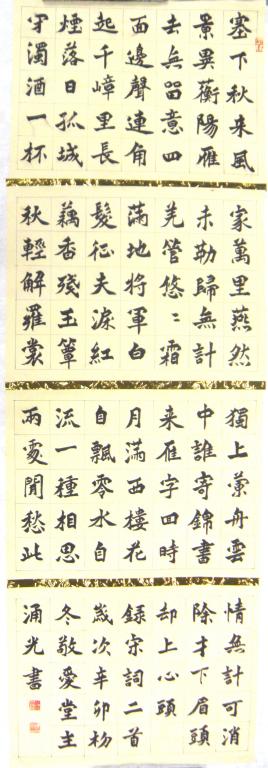 塞下秋来風
景異衡陽雁
去無留意四
面邊聲連角
起千嶂里長
煙落日孤城
閉濁酒一杯
家萬里燕然
未勒歸無計
羌管悠〻霜
滿地將軍白
髮征夫淚紅
藕香殘玉簟
秋輕解羅裳
獨上蘭舟雲
中誰寄錦書
来雁字回時
月滿西樓花
自飄零水自
流一種相思
兩處閒愁此
情無計可消
除才下眉頭
却上心頭
錄宋詞二首
歲次辛卯初
冬敬愛堂主
涌光書